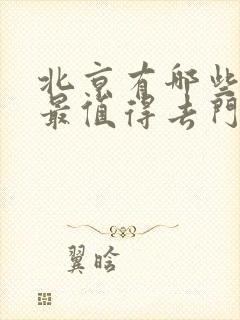 北京有哪些
最值得去门
翼晗